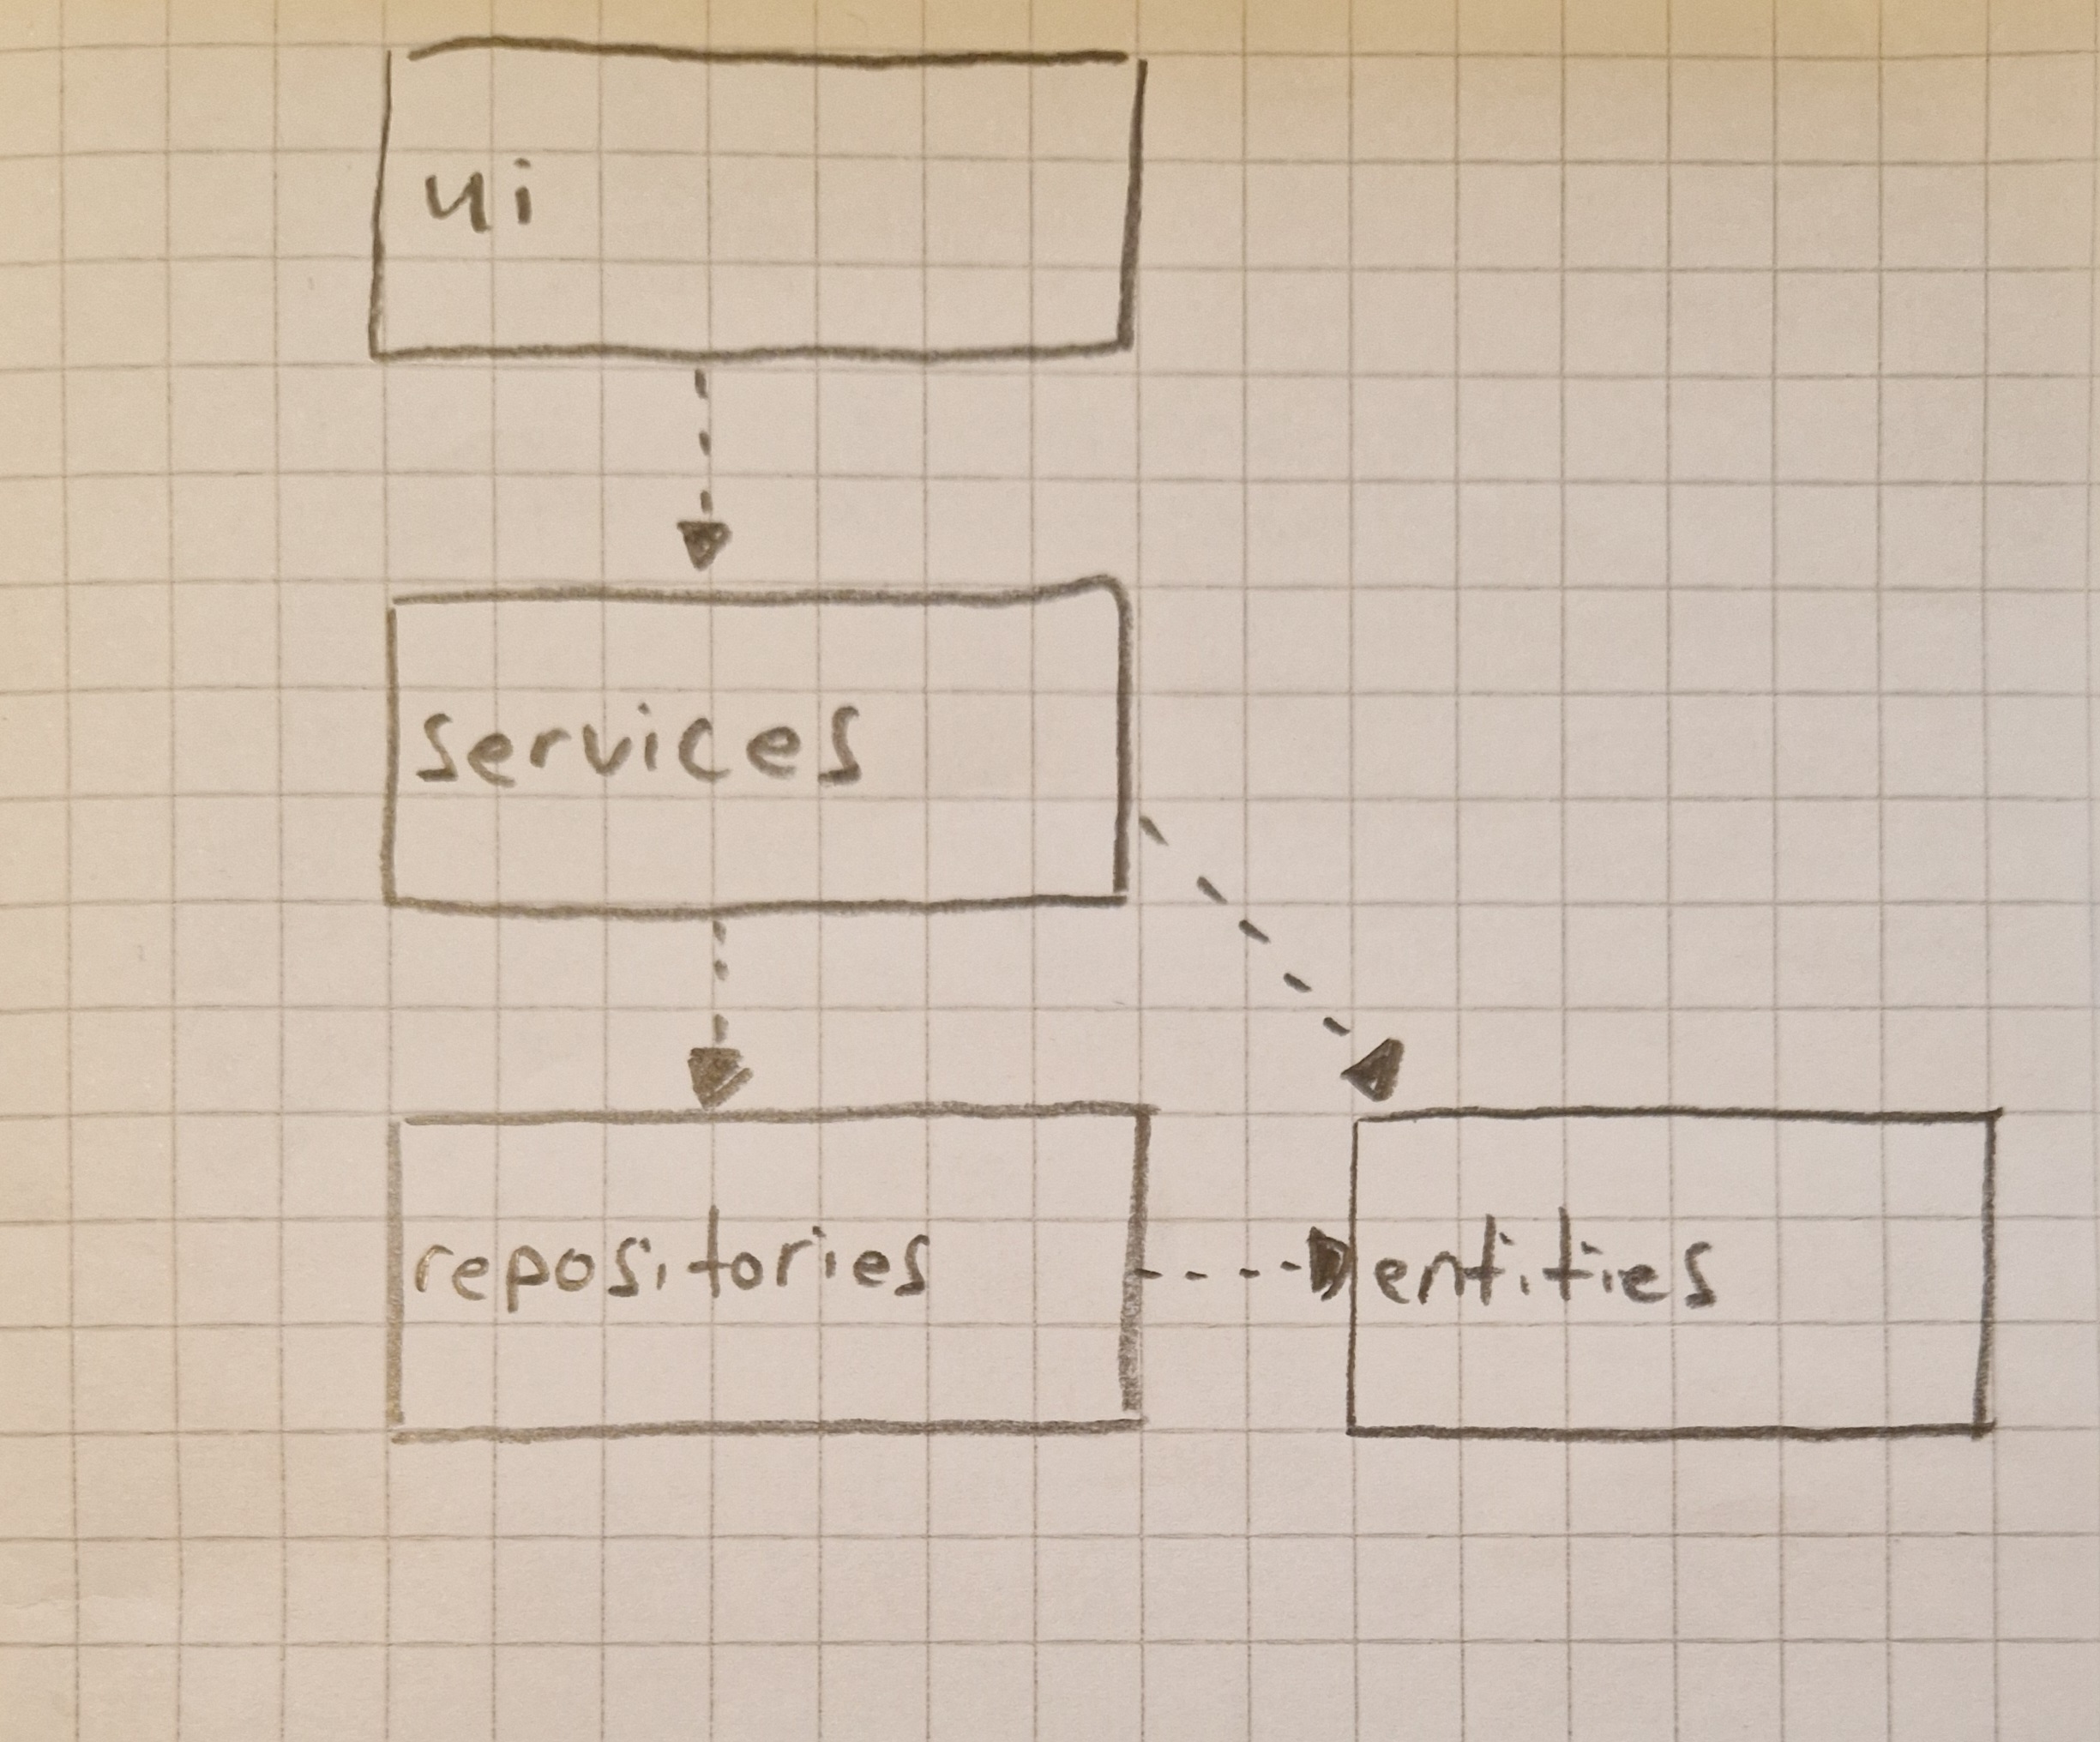 ui
services
repositories
entities